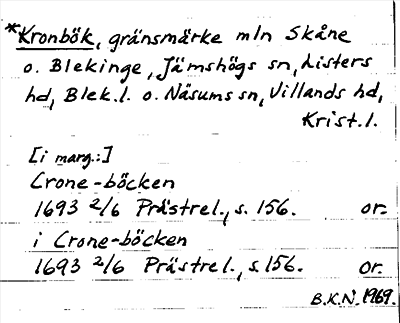 *Kronbök, gränsmärke mln Skåne
o. Blekinge, Jämshögs sn, Listers
hd, Blek.l. o. Näsums sn, Villands hd,
Krist.l.
[i marg.:]
Crone-böcken
1693 2/6 Prästrel., s. 156. or.
i Crone-böcken
1693 2/6 Prästrel., s. 156. or.
B.K.N. 1969.